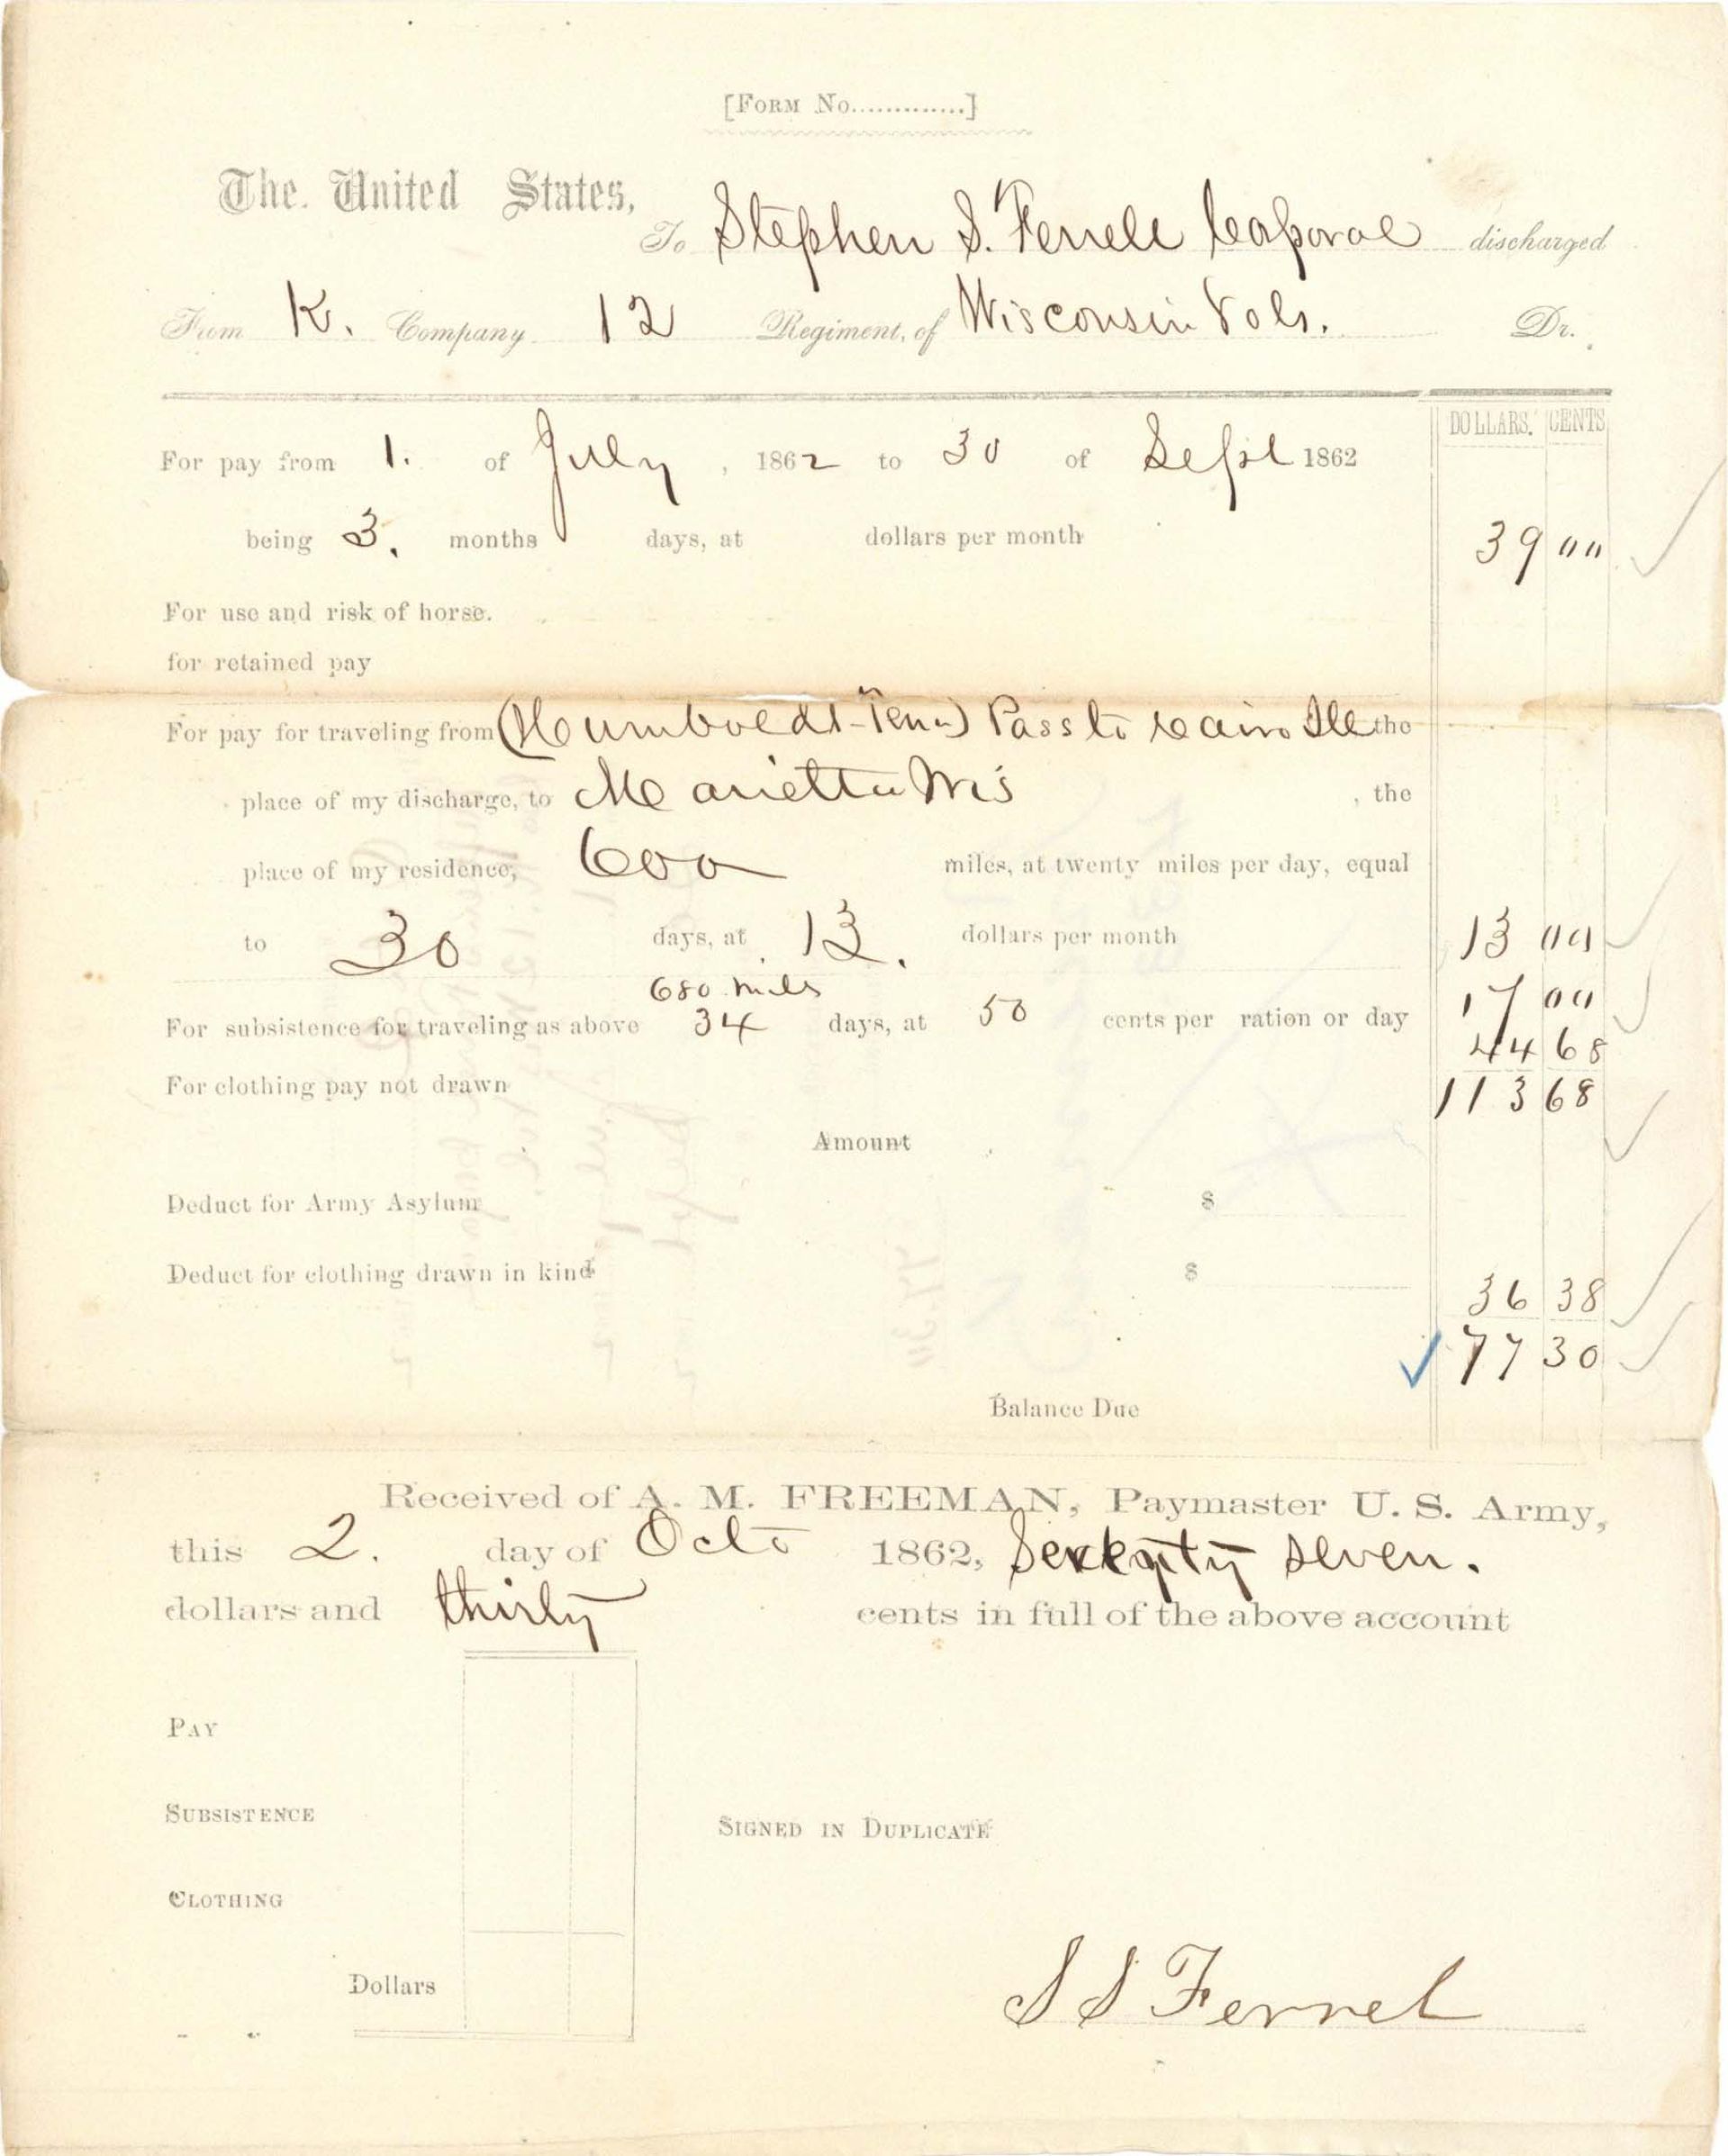 [FORM No.............]
The. United States,
To Stephen S. Ferrell Corporal discharged
From K. Company 12 Regiment, of Wisconsin Vols. Dr.
DOLLARS. CENTS
For pay from 1. of July, 1862 to 30 of Sept 1862
being 3. months days, at dollars per month 39 00
For use and risk of horse.
for retained pay
For pay for traveling from (Humboldt-Tenn) Pass to Cairo Ill the
place of my discharge, to Marietta Wis, the
place of my residence, 600 miles, at twenty miles per day, equal
to 30 days, at 13. dollars per month 13 00
680 mils
For subsistence for traveling as above 34 days, at 50 cents per ration or day 17 00
44 68
For clothing pay not drawn 113 68
Amount
Deduct for Army Asylum $
Deduct for clothing drawn in kind $ 36 38
77 30
Balance Due
Received of A. M. FREEMAN, Paymaster U. S. Army,
this 2. day of Octo 1862, seven.
dollars and thirty cents in full of the above account
PAY
SUBSISTENCE
SIGNED IN DUPLICATE
CLOTHING
Dollars
S S Ferrel